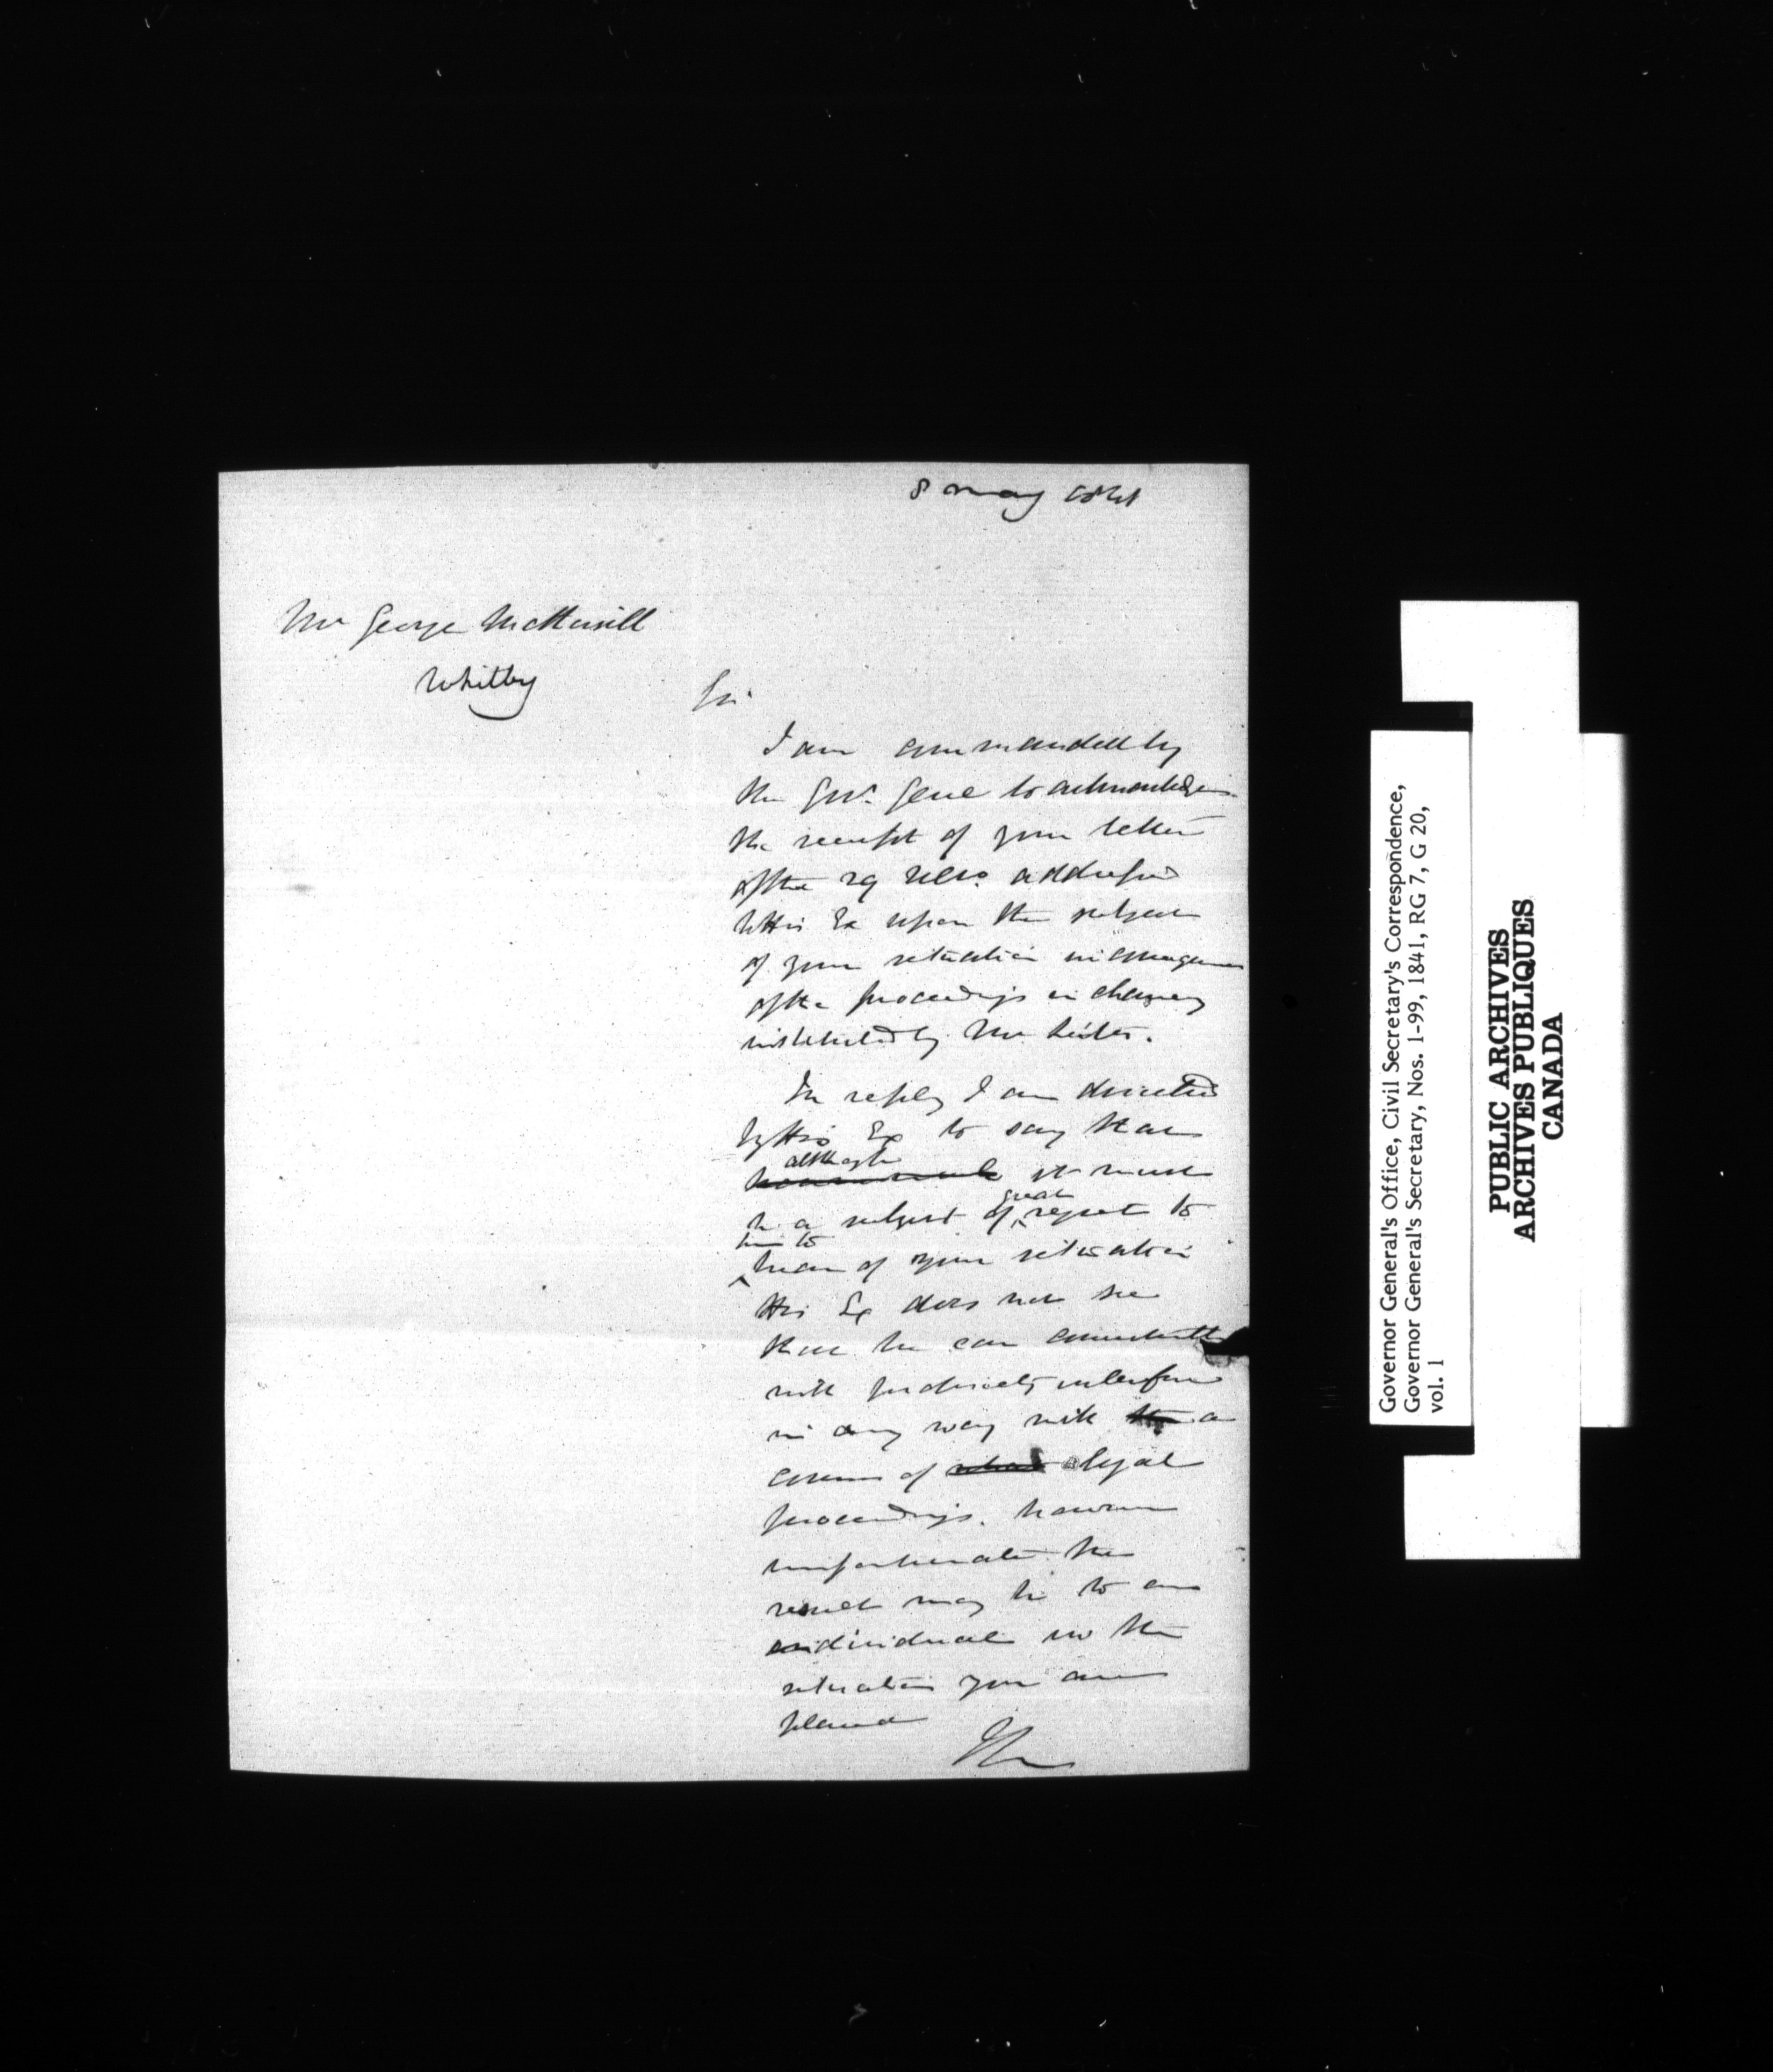 8 May 1841
Mr George
Whitby
Sir
I am commanded by
the Govr. Genl to acknowledge
the receipt of your letter
of the 29 addressed
to His Ex upon the subject
of your situation in consequence
of the proceedings in chancery
instituted by Mr
In reply I am directed
by His Ex to say that
although
it must
be a subject of great regret to
him to
hear of your situation
His Ex does not see
that he can consistently
with propriety interfere
in any way with the a
course of legal
proceedings, however
unfortunate the
result may be to an
individual in the
situation you are
placed
Governor General's Office, Civil Secretary's Correspondence,
Governor General's Secretary, Nos. 1-99, 1841, RG 7, G 20,
vol. 1
PUBLIC ARCHIVES
ARCHIVES PUBLIQUES
CANADA